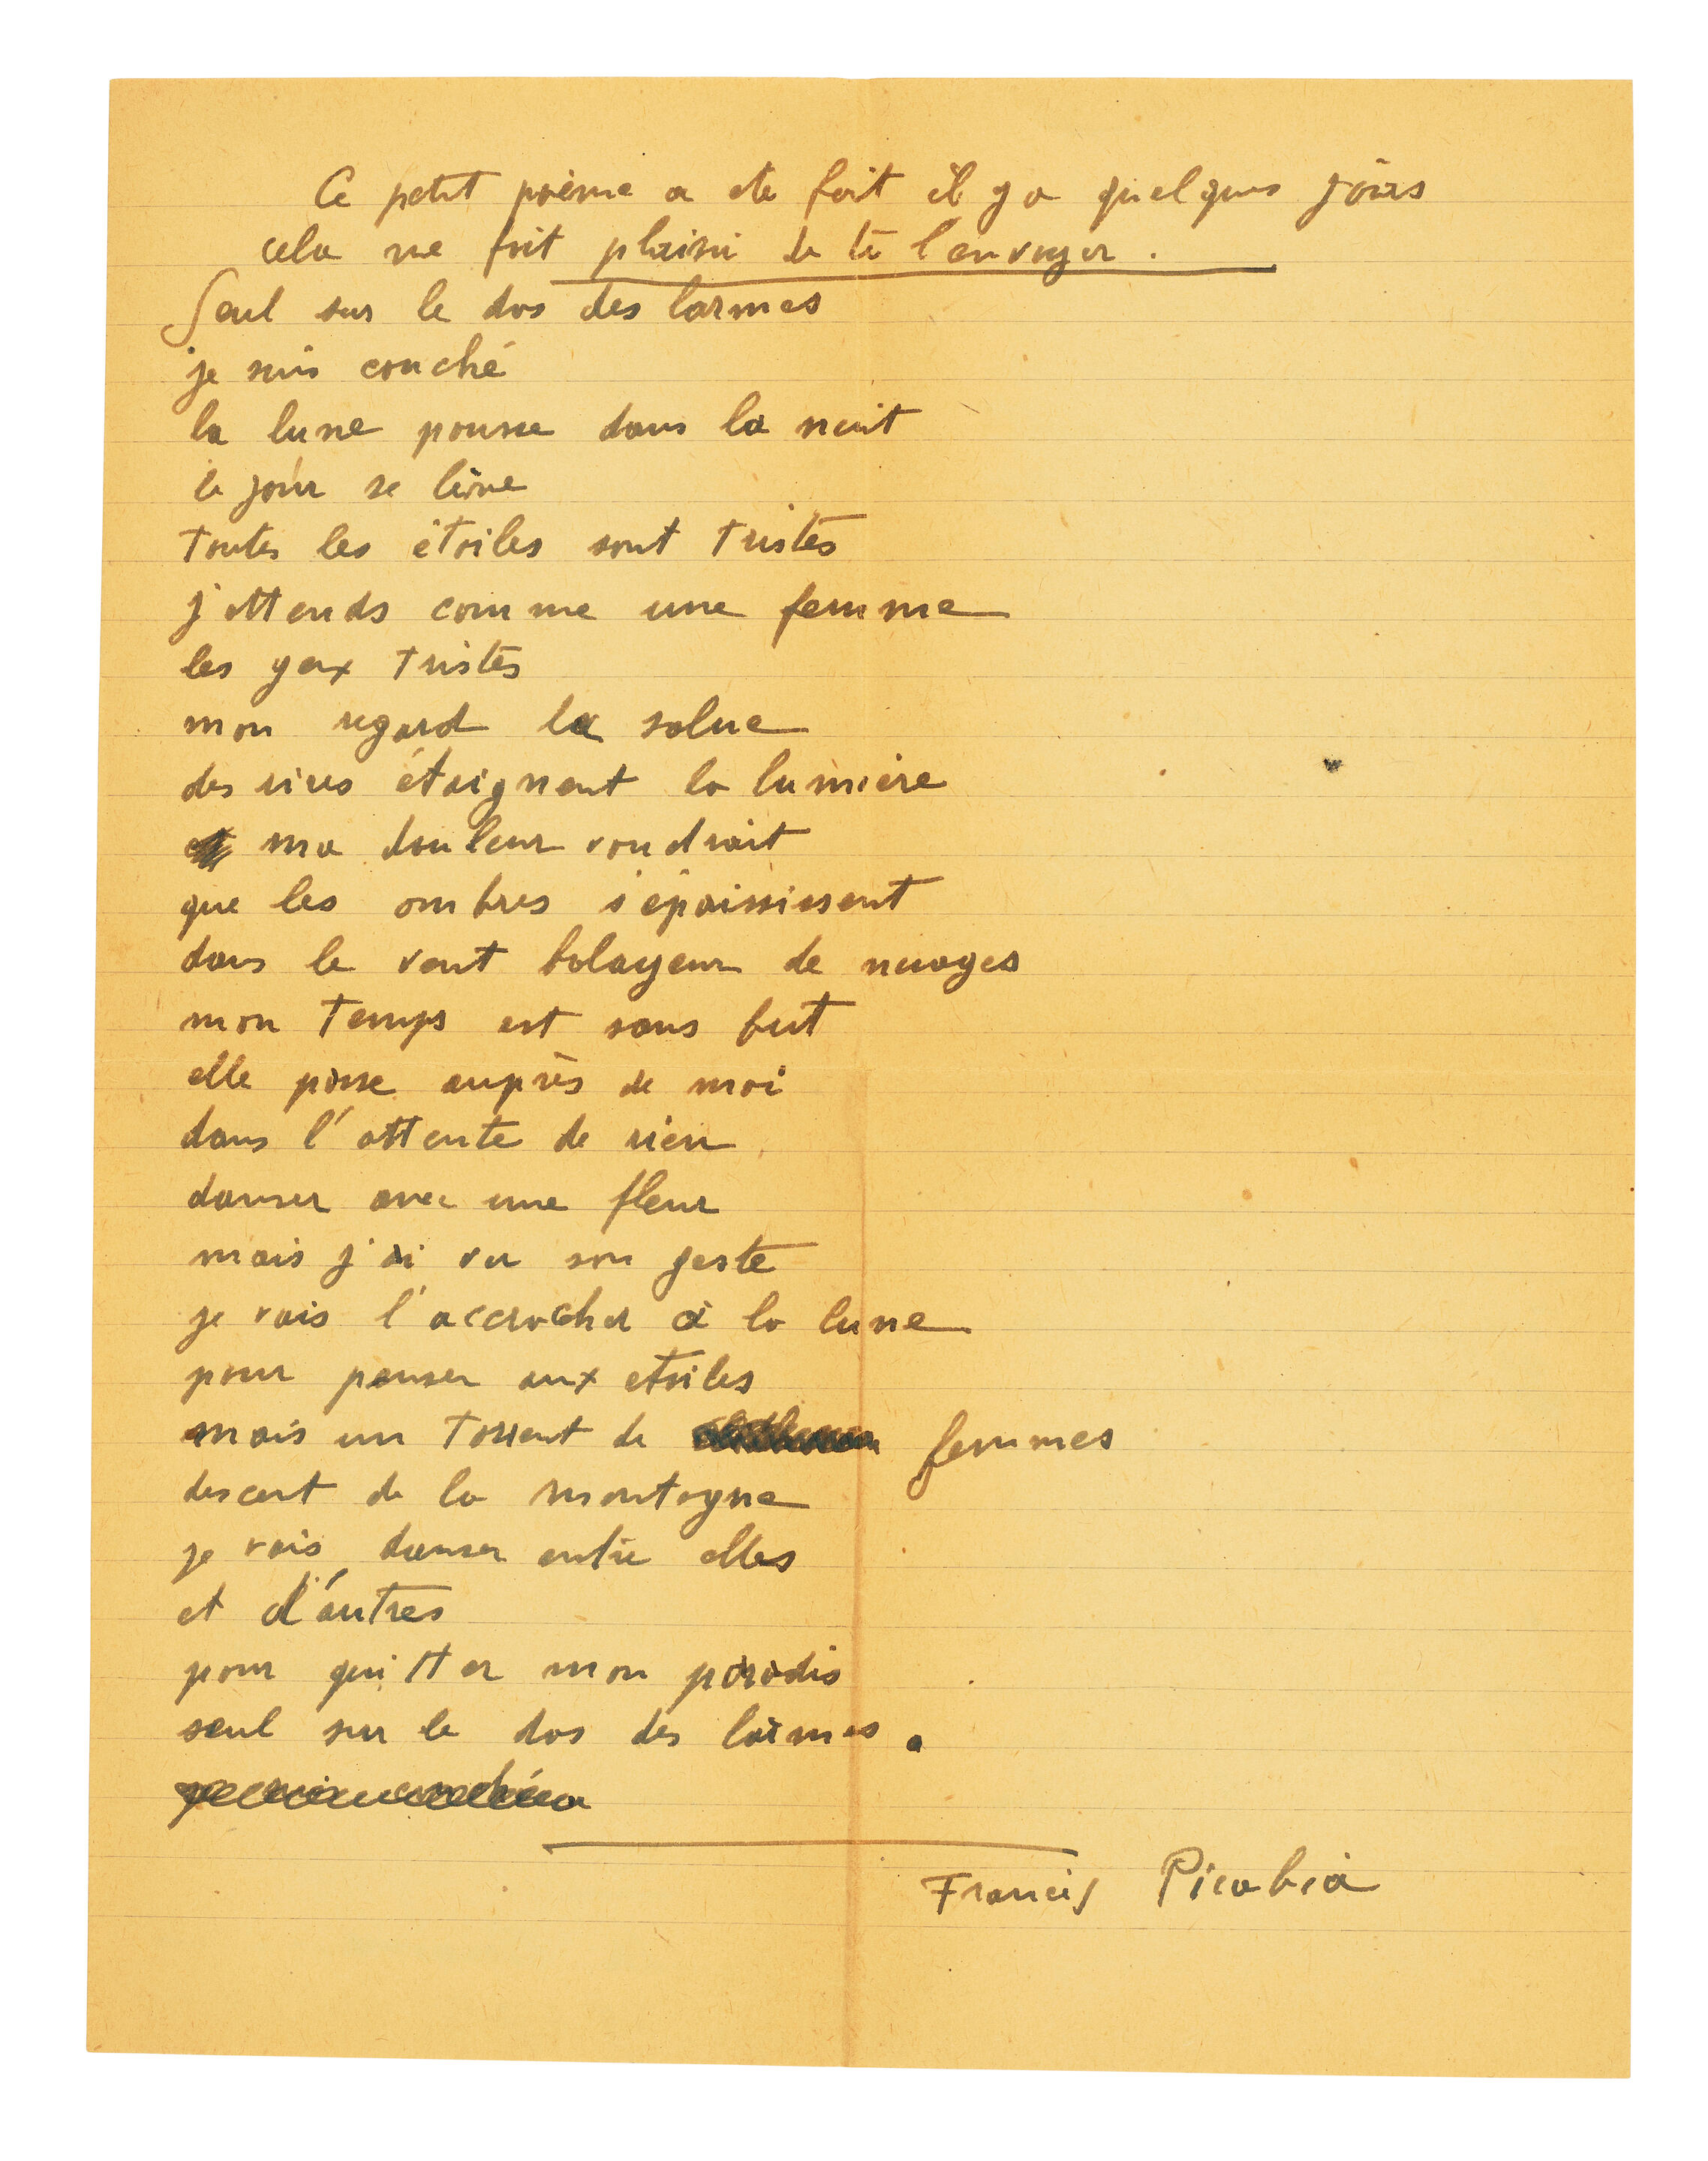 Ce petit poème a ete fait il y a quelques jours
cela me fait plaisir de te l'envoyer.
Seul sur le dos des larmes
je suis couché
la lune pousse dans la nuit
le jour se lève
Toutes les étoiles sont Tristes
j'attends comme une femme
les yeux Tristes
mon regard la salue
des rires éteignent la lumière
ma douleur voudrait
que les ombres s'épaississent
dans le vent balayeur de nuages
mon Temps est sans but
elle passe auprès de moi
dans l'attente de rien
danser avec une fleur
mais j'ai vu son geste
je vais l'accrocher à la lune
pour penser aux etoiles
mais un Torrent de femmes
descent de la montagne
je vais danser entre elles
et d'autres
pour quitter mon paradis
seul sur le dos des larmes.
Francis Picabia